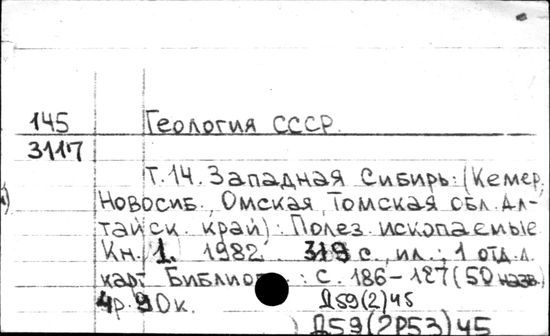 145 Геология СССР.
3117
Т.14. Западная Сибирь: (Кемер,
Новосиб., Омская, Томская обл. Ал-
тайск. край): Полез. ископаемые.
Кн. 1. 1982. 319 с., ил.; 1 отд. л.
карт. : с. 186-187 (50 назв.)
4р. 90к. Д59(2)45
Д59(2Р53)45